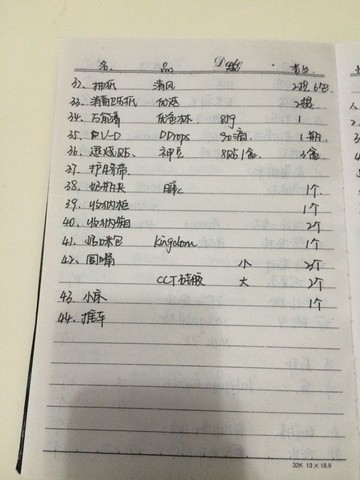 名 品 数
32. 抽纸 清风 2提 6包
33. 2提
34. 万能膏 优色林 1
35. DV-D DDrops 90滴 1瓶
36. 退烧贴 神豆 8贴1盒 3盒
37. 护脐带
38. 奶瓶夹 1个
39. 收纳柜 1个
40. 收纳箱 2个
41. 奶妈包 Kingdom 1个
42. 围嘴 小 2个
CCT硅胶 大 2个
43. 小床 1个
44. 推车
32K 13×18.9